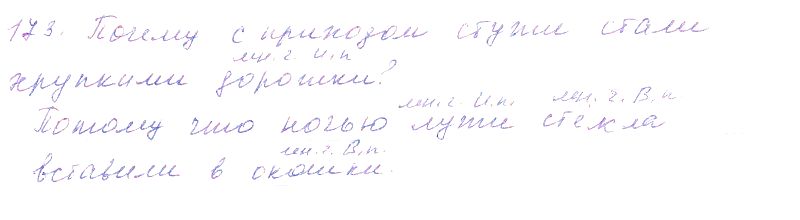 173. Почему с приходом стужи стали
мн. ч. И. п
хрупкими дорожки?
мн. ч. И. п. мн. ч. В. п
Потому что ночью лужи стекла
мн. ч. В. п.
вставили в окошки.